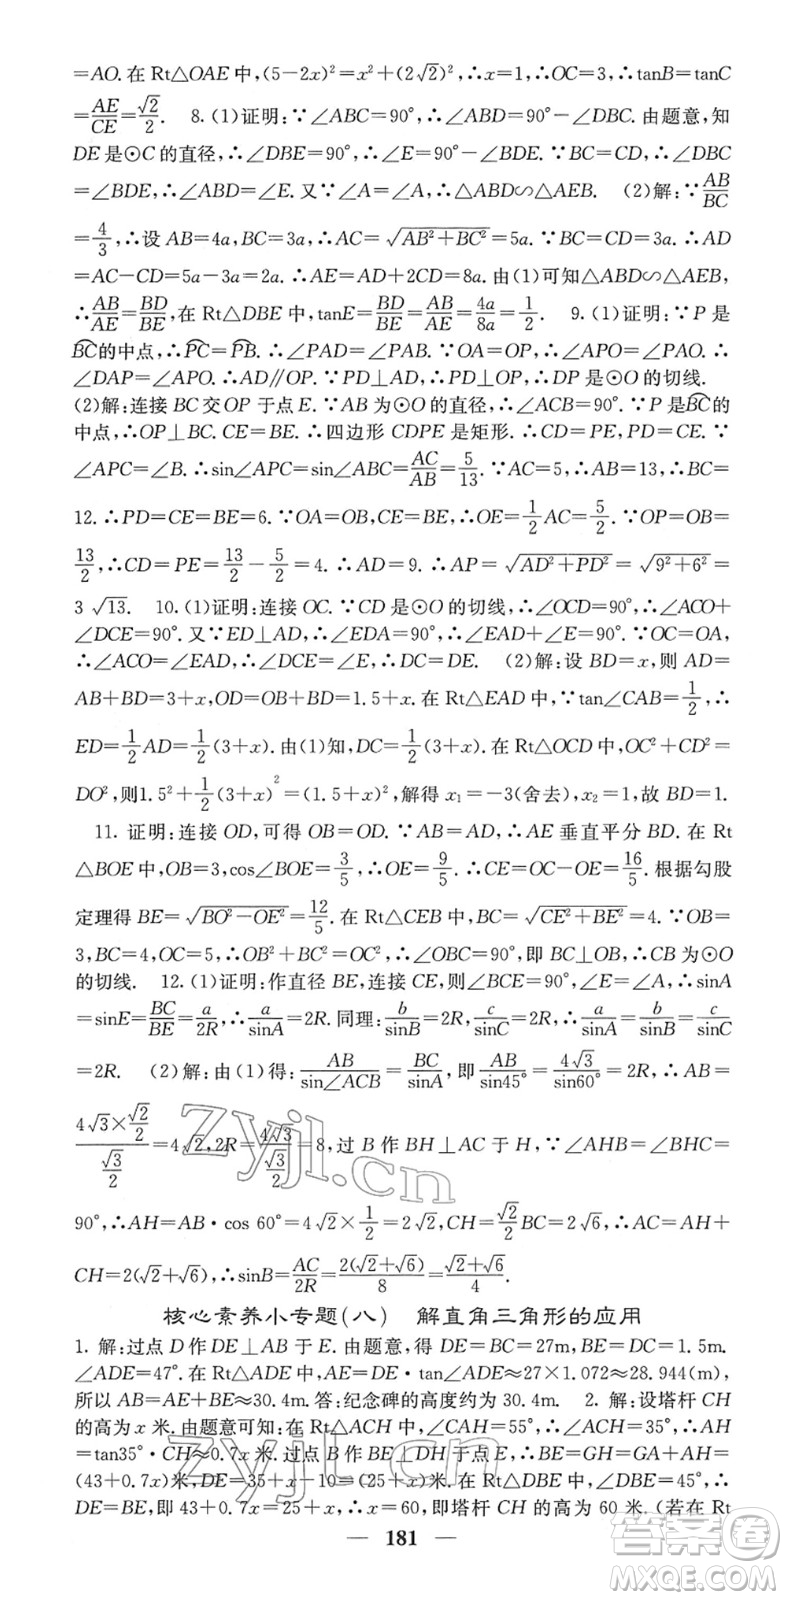 =AO.在 Rt△OAE 中,(5-2x)²=x²+(2√2)²,∴x=1,∴OC=3,∴tanB=tanC
=AE/CE=√2/2. 8.(1)证明:∵∠ABC=90°,∴∠ABD=90°-∠DBC.由题意,知
DE 是⊙C 的直径,∴∠DBE=90°,∴∠E=90°-∠BDE.∵BC=CD,∴∠DBC
=∠BDE,∴∠ABD=∠E.又∵∠A=∠A,∴△ABD∽△AEB. (2)解:∵AB/BC
=4/3,∴设 AB=4a,BC=3a,∴AC=√(AB²+BC²)=5a.∵BC=CD=3a.∴AD
=AC-CD=5a-3a=2a.∴AE=AD+2CD=8a.由(1)可知△ABD∽△AEB,
∴AB/AE=BD/BE,在 Rt△DBE 中,tanE=BD/BE=AB/AE=4a/8a=1/2. 9.(1)证明:∵P 是
⌒BC的中点,∴⌒PC=⌒PB.∴∠PAD=∠PAB.∵OA=OP,∴∠APO=∠PAO.∴
∠DAP=∠APO.∴AD∥OP.∵PD⊥AD,∴PD⊥OP,∴DP 是⊙O 的切线.
(2)解:连接 BC 交 OP 于点 E.∵AB 为⊙O 的直径,∴∠ACB=90°.∵P 是⌒BC的
中点,∴OP⊥BC.CE=BE.∴四边形 CDPE 是矩形.∴CD=PE,PD=CE.∵
∠APC=∠B.∴sin∠APC=sin∠ABC=AC/AB=5/13.∵AC=5,∴AB=13,∴BC=
12.∴PD=CE=BE=6.∵OA=OB,CE=BE,∴OE=1/2AC=5/2.∵OP=OB=
13/2,∴CD=PE=13/2-5/2=4.∴AD=9.∴AP=√(AD²+PD²)=√(9²+6²)=
3√13. 10.(1)证明:连接 OC.∵CD 是⊙O 的切线,∴∠OCD=90°,∴∠ACO+
∠DCE=90°.又∵ED⊥AD,∴∠EDA=90°,∴∠EAD+∠E=90°.∵OC=OA,
∴∠ACO=∠EAD,∴∠DCE=∠E,∴DC=DE. (2)解:设 BD=x,则 AD=
AB+BD=3+x,OD=OB+BD=1.5+x.在 Rt△EAD 中,∵tan∠CAB=1/2,∴
ED=1/2AD=1/2(3+x).由(1)知,DC=1/2(3+x).在 Rt△OCD 中,OC²+CD²=
DO²,则1.5²+1/2(3+x)²=(1.5+x)²,解得 x₁=-3(舍去),x₂=1,故 BD=1.
11.证明:连接 OD,可得 OB=OD.∵AB=AD,∴AE 垂直平分 BD.在 Rt
△BOE 中,OB=3,cos∠BOE=3/5,∴OE=9/5.∴CE=OC-OE=16/5.根据勾股
定理得 BE=√(BO²-OE²)=12/5.在 Rt△CEB 中,BC=√(CE²+BE²)=4.∵OB=
3,BC=4,OC=5,∴OB²+BC²=OC²,∴∠OBC=90°,即 BC⊥OB,∴CB 为⊙O
的切线. 12.(1)证明:作直径 BE,连接 CE,则∠BCE=90°,∠E=∠A,∴sinA
=sinE=BC/BE=a/2R,∴a/sinA=2R.同理:b/sinB=2R,c/sinC=2R,∴a/sinA=b/sinB=c/sinC
=2R. (2)解:由(1)得:AB/sin∠ACB=BC/sinA,即AB/sin45°=4√3/sin60°=2R,∴AB=
(4√3×√2/2)/(√3/2)=4√2,2R=4√3/(√3/2)=8,过 B 作 BH⊥AC 于 H,∵∠AHB=∠BHC=
90°,∴AH=AB·cos 60°=4√2×1/2=2√2,CH=√2/2BC=2√6,∴AC=AH+
CH=2(√2+√6),∴sinB=AC/2R=2(√2+√6)/8=(√2+√6)/4.
核心素养小专题(八) 解直角三角形的应用
1.解:过点 D 作 DE⊥AB 于 E.由题意,得 DE=BC=27m,BE=CD=1.5m.
∠ADE=47°.在 Rt△ADE 中,AE=DE·tan∠ADE≈27×1.072≈28.944(m),
所以 AB=AE+BE≈30.4m.答:纪念碑的高度约为 30.4m. 2.解:设塔杆 CH
的高为 x 米.由题意可知:在 Rt△ACH 中,∠CAH=55°,∴∠ACH=35°,∴AH=
tan35°·CH≈0.7x 米.过点 B 作 BE⊥DH 于点 E,∴BE=GH=GA+AH=
(43+0.7x)米,DE=35+x-10=(25+x)米.在 Rt△DBE 中,∠DBE=45°,∴
DE=BE,即 43+0.7x=25+x,∴x=60,即塔杆 CH 的高为 60 米.(若在 Rt
— 181 —
zyjl.cn
zyjl.cn
答案圈
MXQE.COM